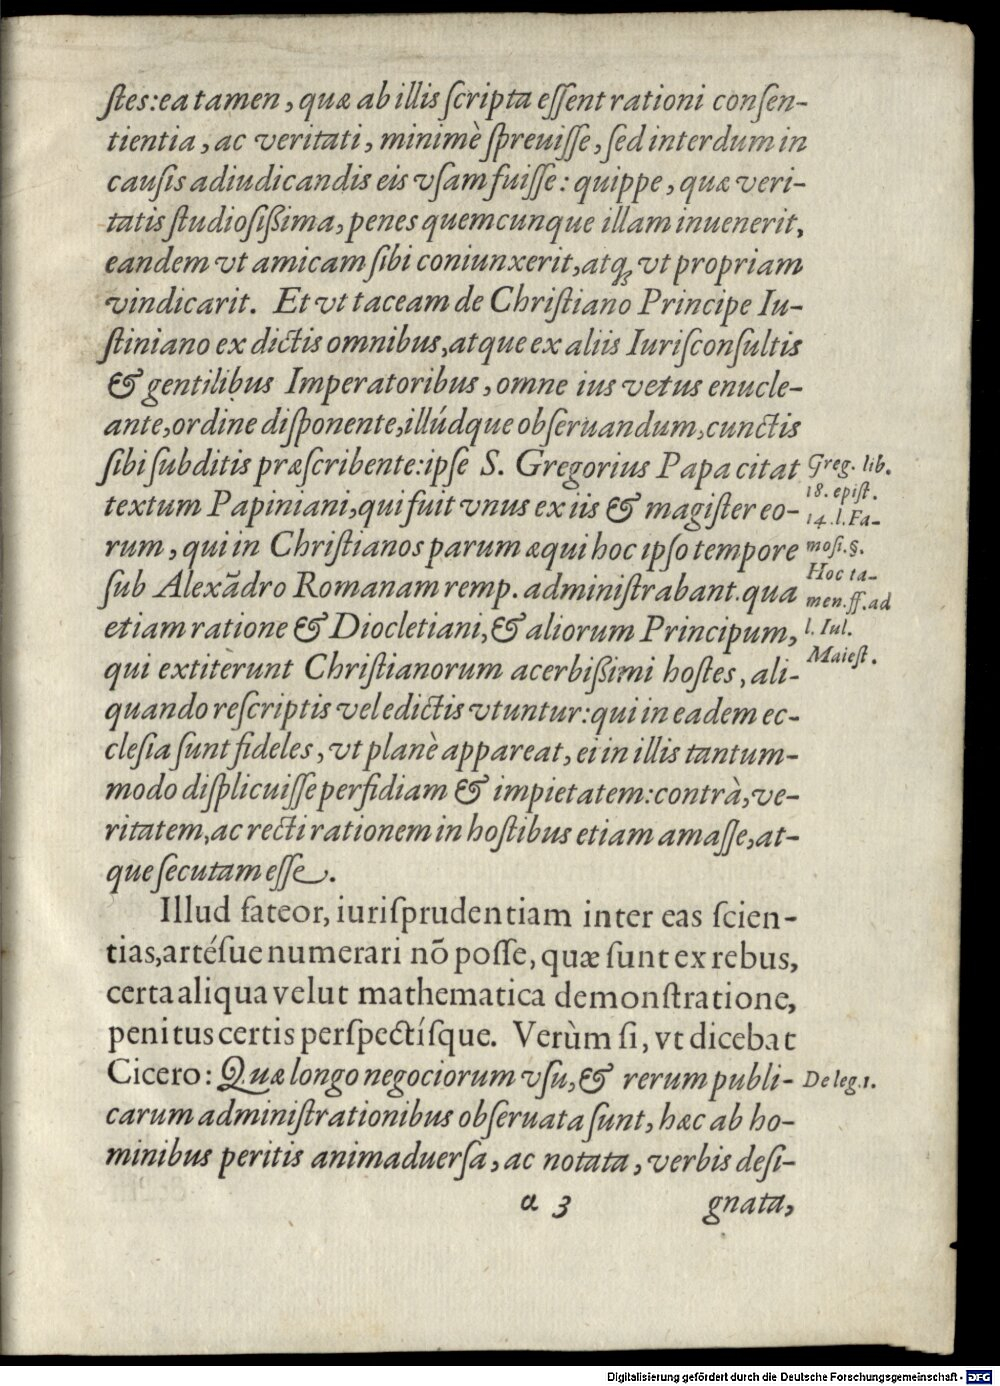 ſtes: ea tamen, quæ ab illis ſcripta eſſent rationi conſen-
tientia, ac veritati, minimè ſpreuiſſe, ſed interdum in
cauſis adiudicandis eis vſam fuiſſe: quippe, quæ veri-
tatis ſtudioſißima, penes quemcunque illam inuenerit,
eandem vt amicam ſibi coniunxerit, atq; vt propriam
vindicarit. Et vt taceam de Chriſtiano Principe Iu-
ſtiniano ex dictis omnibus, atque ex aliis Iuriſconſultis
& gentilibus Imperatoribus, omne ius vetus enucle-
ante, ordine diſponente, illúdque obſeruandum, cunctis
ſibi ſubditis præſcribente: ipſe S. Gregorius Papa citat
textum Papiniani, qui fuit vnus ex iis & magiſter eo-
rum, qui in Chriſtianos parum æqui hoc ipſo tempore
ſub Alexãdro Romanam remp. adminiſtrabant. qua
etiam ratione & Diocletiani, & aliorum Principum,
qui extiterunt Chriſtianorum acerbißimi hoſtes, ali-
quando reſcriptis vel edictis vtuntur: qui in eadem ec-
cleſia ſunt fideles, vt planè appareat, ei in illis tantum-
modo diſplicuiſſe perfidiam & impietatem: contrà, ve-
ritatem, ac recti rationem in hoſtibus etiam amaſſe, at-
que ſecutam eſſe.
Greg. lib.
18. epiſt.
14. l. Fa-
moſi. §.
Hoc ta-
men. ff. ad
l. Iul.
Maieſt.
Illud fateor, iuriſprudentiam inter eas ſcien-
tias, artéſue numerari nõ poſſe, quæ ſunt ex rebus,
certa aliqua velut mathematica demonſtratione,
penitus certis perſpectíſque. Verùm ſi, vt dicebat
Cicero: Quæ longo negociorum vſu, & rerum publi-
carum adminiſtrationibus obſeruata ſunt, hæc ab ho-
minibus peritis animaduerſa, ac notata, verbis deſi-
De leg. 1.
a 3
gnata,
Digitalisierung gefördert durch die Deutsche Forschungsgemeinschaft - DFG